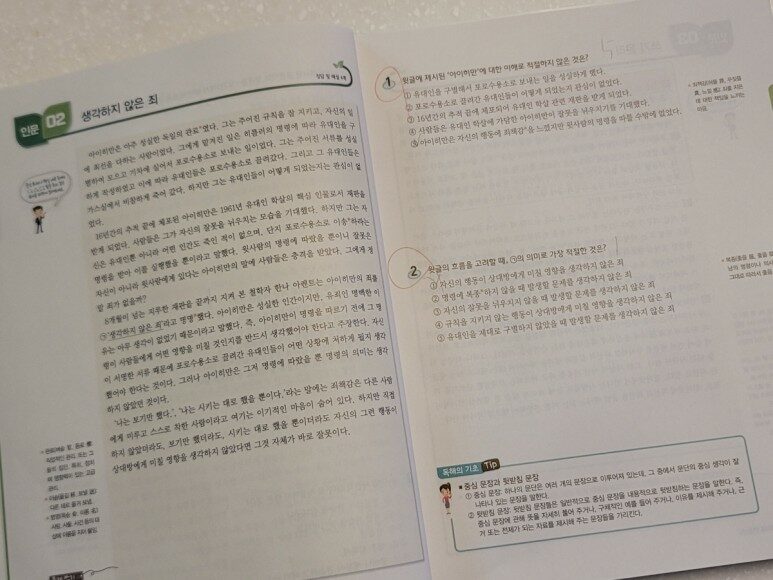 인문 02 생각하지 않은 죄
정답 및 해설 4쪽
아이히만은 아주 성실한 독일의 관료*였다. 그는 주어진 규칙을 잘 지키고, 자신의 일
에 최선을 다하는 사람이었다. 그에게 맡겨진 일은 히틀러의 명령에 따라 유대인을 구
별하여 모으고 기차에 실어서 포로수용소로 보내는 일이었다. 그는 주어진 서류를 성실
하게 작성하였고 이에 따라 유대인들은 포로수용소로 끌려갔다. 그리고 그 유대인들은
가스실에서 비참하게 죽어 갔다. 하지만 그는 유대인들이 어떻게 되었는지는 관심이 없
었다.
16년간의 추적 끝에 체포된 아이히만은 1961년 유대인 학살의 핵심 인물로서 재판을
받게 되었다. 사람들은 그가 자신의 잘못을 뉘우치는 모습을 기대했다. 하지만 그는 자
신은 유대인뿐 아니라 어떤 인간도 죽인 적이 없으며, 단지 포로수용소로 이송*하라는
명령을 받아 이를 실행했을 뿐이라고 말했다. 윗사람의 명령에 따랐을 뿐이니 잘못은
자신이 아니라 윗사람에게 있다는 아이히만의 말에 사람들은 충격을 받았다. 그에게 정
말 죄가 없을까?
8개월이 넘는 지루한 재판을 끝까지 지켜 본 철학자 한나 아렌트는 아이히만의 죄를
㉠'생각하지 않은 죄'라고 명명*했다. 아이히만은 성실한 인간이지만, 유죄인 명백한 이
유는 아무 생각이 없었기 때문이라고 말했다. 즉, 아이히만이 명령을 따르기 전에 그 명
령이 사람들에게 어떤 영향을 미칠 것인지를 반드시 생각했어야 한다고 주장한다. 자신
이 서명한 서류 때문에 포로수용소로 끌려간 유대인들이 어떤 상황에 처하게 될지 생각
했어야 한다는 것이다. 그러나 아이히만은 그저 명령에 따랐을 뿐 명령의 의미는 생각
하지 않았던 것이다.
'나는 보기만 했다.', '나는 시키는 대로 했을 뿐이다.'라는 말에는 죄책감은 다른 사람
에게 미루고 스스로 착한 사람이라고 여기는 이기적인 마음이 숨어 있다. 하지만 직접
하지 않았더라도, 보기만 했더라도, 시키는 대로 했을 뿐이더라도 자신의 그런 행동이
상대방에게 미칠 영향을 생각하지 않았다면 그것 자체가 바로 잘못이다.
1 윗글에 제시된 '아이히만'에 대한 이해로 적절하지 않은 것은?
① 유대인을 구별해서 포로수용소로 보내는 일을 성실하게 했다.
② 포로수용소로 끌려간 유대인들이 어떻게 되었는지 관심이 없었다.
③ 16년간의 추적 끝에 체포되어 유대인 학살 관련 재판을 받게 되었다.
④ 사람들은 유대인 학살에 가담한 아이히만이 잘못을 뉘우치기를 기대했다.
⑤ 아이히만은 자신의 행동에 죄책감*을 느꼈지만 윗사람의 명령을 따를 수밖에 없었다.
2 윗글의 흐름을 고려할 때, ㉠의 의미로 가장 적절한 것은?
① 자신의 행동이 상대방에게 미칠 영향을 생각하지 않은 죄
② 명령에 복종*하지 않을 때 발생할 문제를 생각하지 않은 죄
③ 자신의 잘못을 뉘우치지 않을 때 발생할 문제를 생각하지 않은 죄
④ 규칙을 지키지 않는 행동이 상대방에게 미칠 영향을 생각하지 않은 죄
⑤ 유대인을 제대로 구별하지 않았을 때 발생할 문제를 생각하지 않은 죄
독해의 기초 Tip
■ 중심 문장과 뒷받침 문장
① 중심 문장: 하나의 문단은 여러 개의 문장으로 이루어져 있는데, 그 중에서 문단의 중심 생각이 잘
나타나 있는 문장을 말한다.
② 뒷받침 문장: 뒷받침 문장들은 일반적으로 중심 문장을 내용적으로 뒷받침하는 문장을 말한다. 즉,
중심 문장에 관해 뜻을 자세히 풀어 주거나, 구체적인 예를 들어 주거나, 이유를 제시해 주거나, 근
거 또는 전제가 되는 자료를 제시해 주는 문장들을 가리킨다.